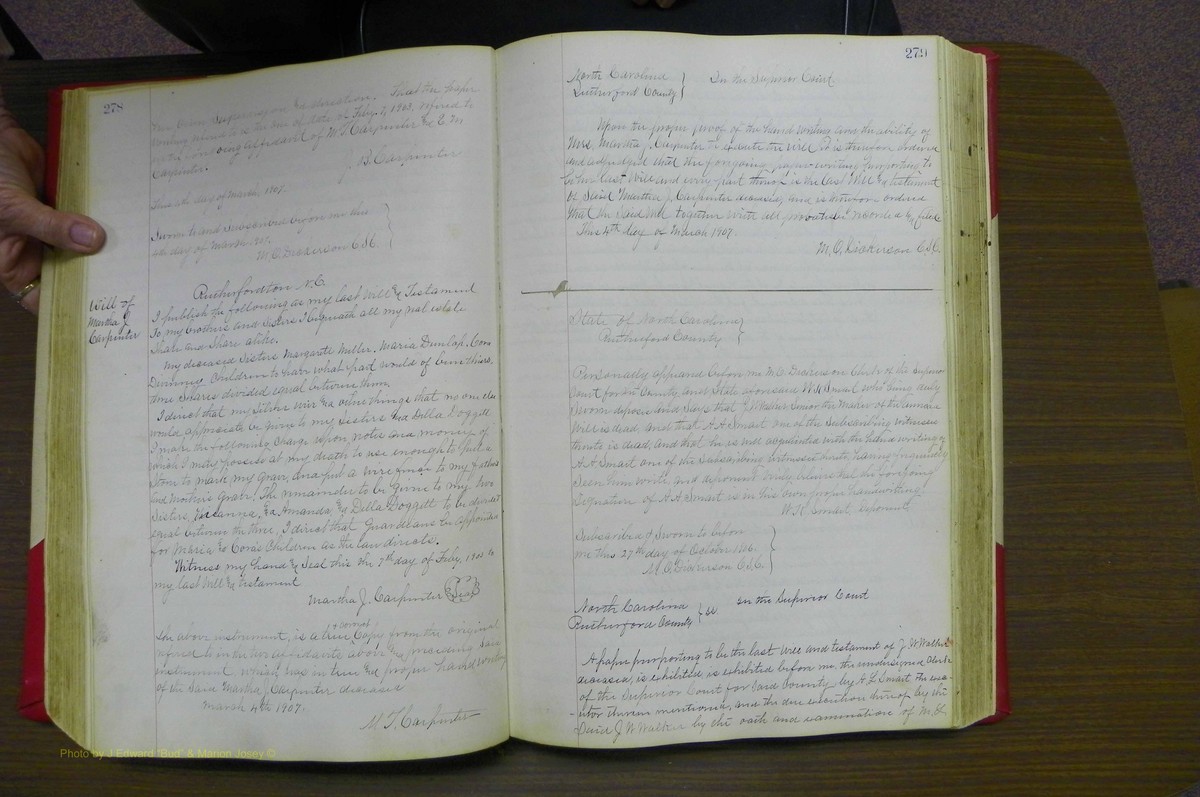 278
That the paper
writing referred to is the one of date of Feby. 7, 1903, referred to
in the foregoing affidavit of W. J. Carpenter & E. M.
Carpenter.
J. B. Carpenter
This 4th day of March, 1907.
Sworn to and Subscribed before me this
4th day of March 1907.
M. O. Dickerson C.S.C.
Will of
Martha J.
Carpenter
Rutherfordton N.C.
I publish the following as my last Will & Testament
To my brothers and Sisters I bequeath all my real estate
Share and Share alike.
My deceased Sisters Margarett Miller, Maria Dunlap, Cora
Children to have what had would of been theirs.
three Shares divided equal between them.
I direct that my Silver and other things that no one else
would appreciate be given to my Sisters and Della Doggett
I make the following charge upon notes and monies of
which I may possess at my death to use enough to put a
Stone to mark my Grave, and put a wire fence to my Fathers
and Mothers Grave, The remainder to be given to my two
Sisters, & Amanda, & Della Doggett to be divided
equal between the three, I direct that Guardians be appointed
for Maria & Cora's Children as the law directs.
Witness my hand & Seal this the 7th day of Feby, 1903 to
my last Will & Testament
Martha J. Carpenter Seal
The above instrument, is a true & correct Copy from the original
referred to in the two affidavits above & preceding said
instrument which was in true & proper hand writing
of the Said Martha J. Carpenter deceased
March 4th 1907.
M. T. Carpenter
279
North Carolina } In the Superior Court
Rutherford County
Upon the proper proof of the hand writing and the ability of
Mrs. Martha J. Carpenter to execute the Will it is therefore ordered
and adjudged that the foregoing paper-writing purporting to
be her last Will and every part thereof is the last Will & testament
of Said Martha J. Carpenter deceased, and is therefore ordered
that the Said Will together with all probates be recorded & filed
This 4th day of March 1907.
M. O. Dickerson C.S.C.
State of North Carolina }
Rutherford County
Personally appeared before me M.O. Dickerson Clerk of the Superior
Court for the County and State aforesaid W. K. Smart who being duly
Sworn deposes and Says that J. W. Walker Senior the Maker of the
Will is dead, and that A. A. Smart one of the Subscribing witnesses
thereto is dead, and that he is well acquainted with the hand writing of
A. A. Smart one of the Subscribing witnesses thereto, having frequently
Seen him write and deponent truly believes that the foregoing
Signature of A. A. Smart is in his own proper handwriting.
W. K. Smart, deponent
Subscribed & Sworn to before
me this 27th day of October 1906.
M. O. Dickerson C.S.C.
North Carolina } SS. In the Superior Court
Rutherford County
A paper purporting to be the last Will and testament of J. W. Walker
deceased, is exhibited, is exhibited before me, the undersigned Clerk
of the Superior Court for Said County by A. L. Smart the exe-
-utor therein mentioned, and the due execution thereof by the
Said J. W. Walker by the oath and examination of
Photo by J Edward "Bud" & Marion Josey ©